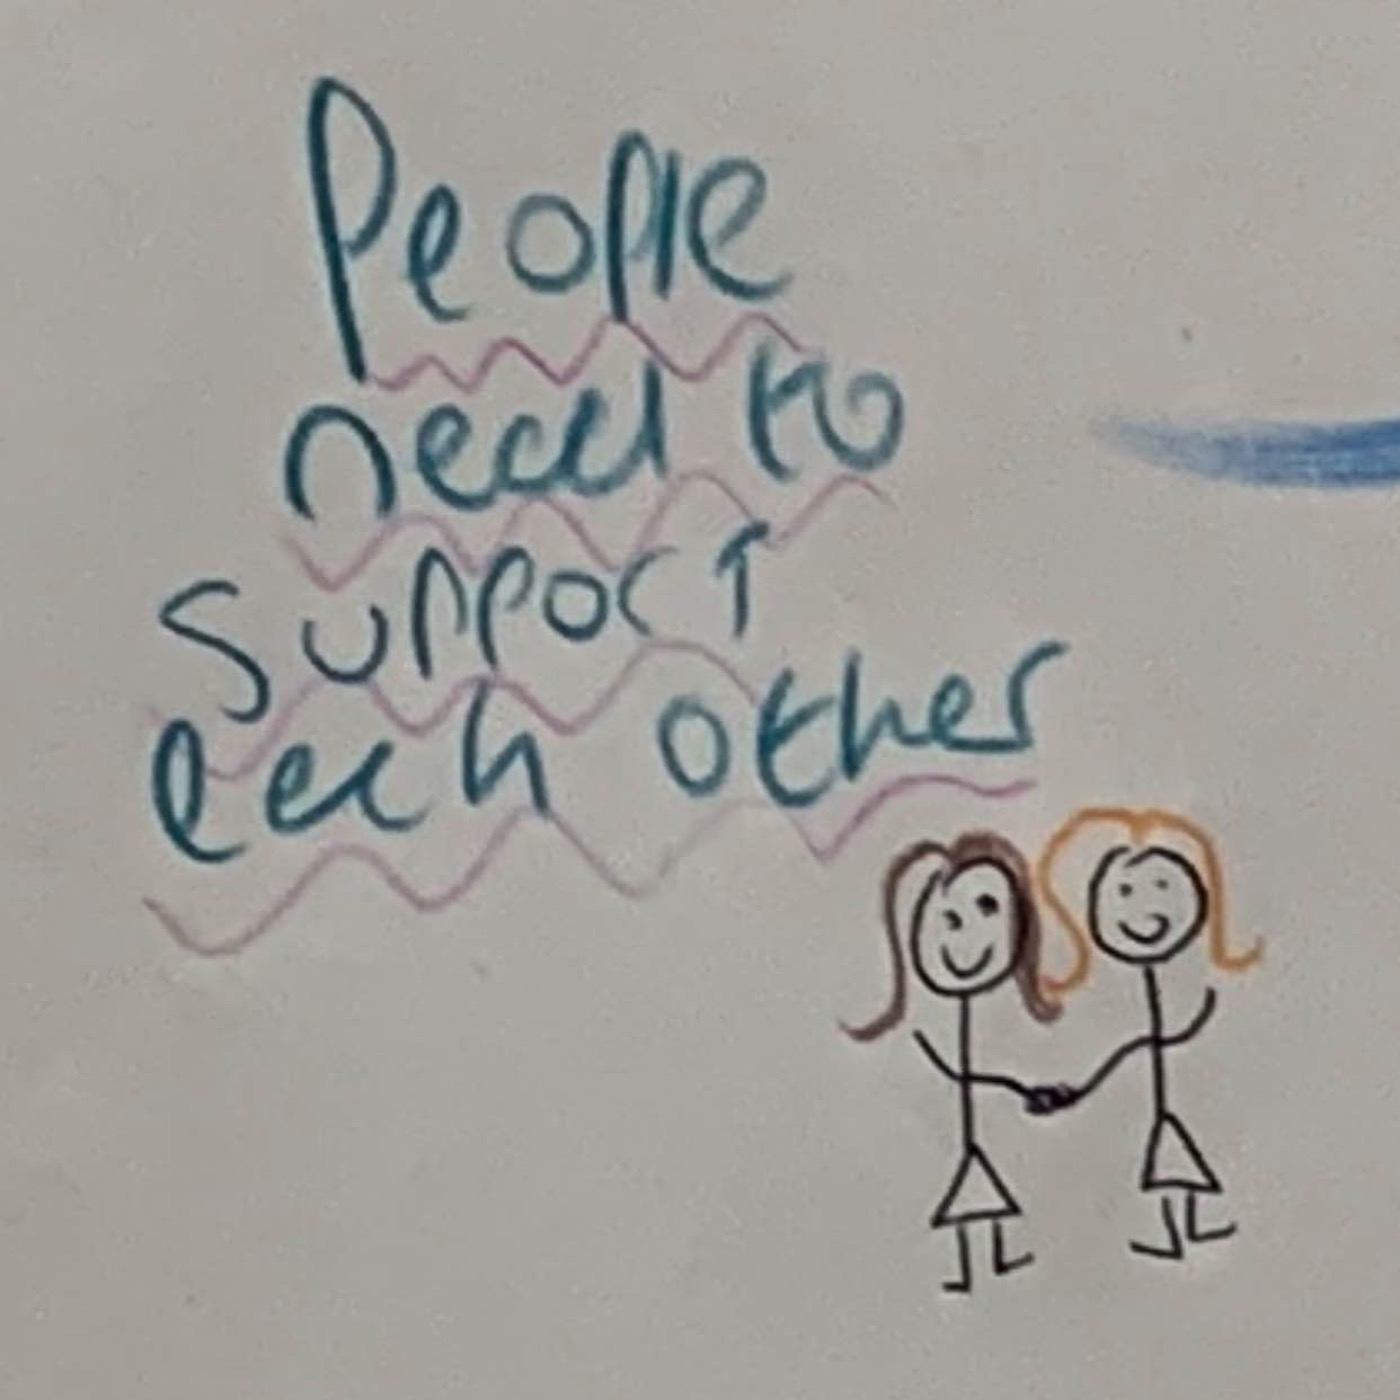 People
need to
support
each other